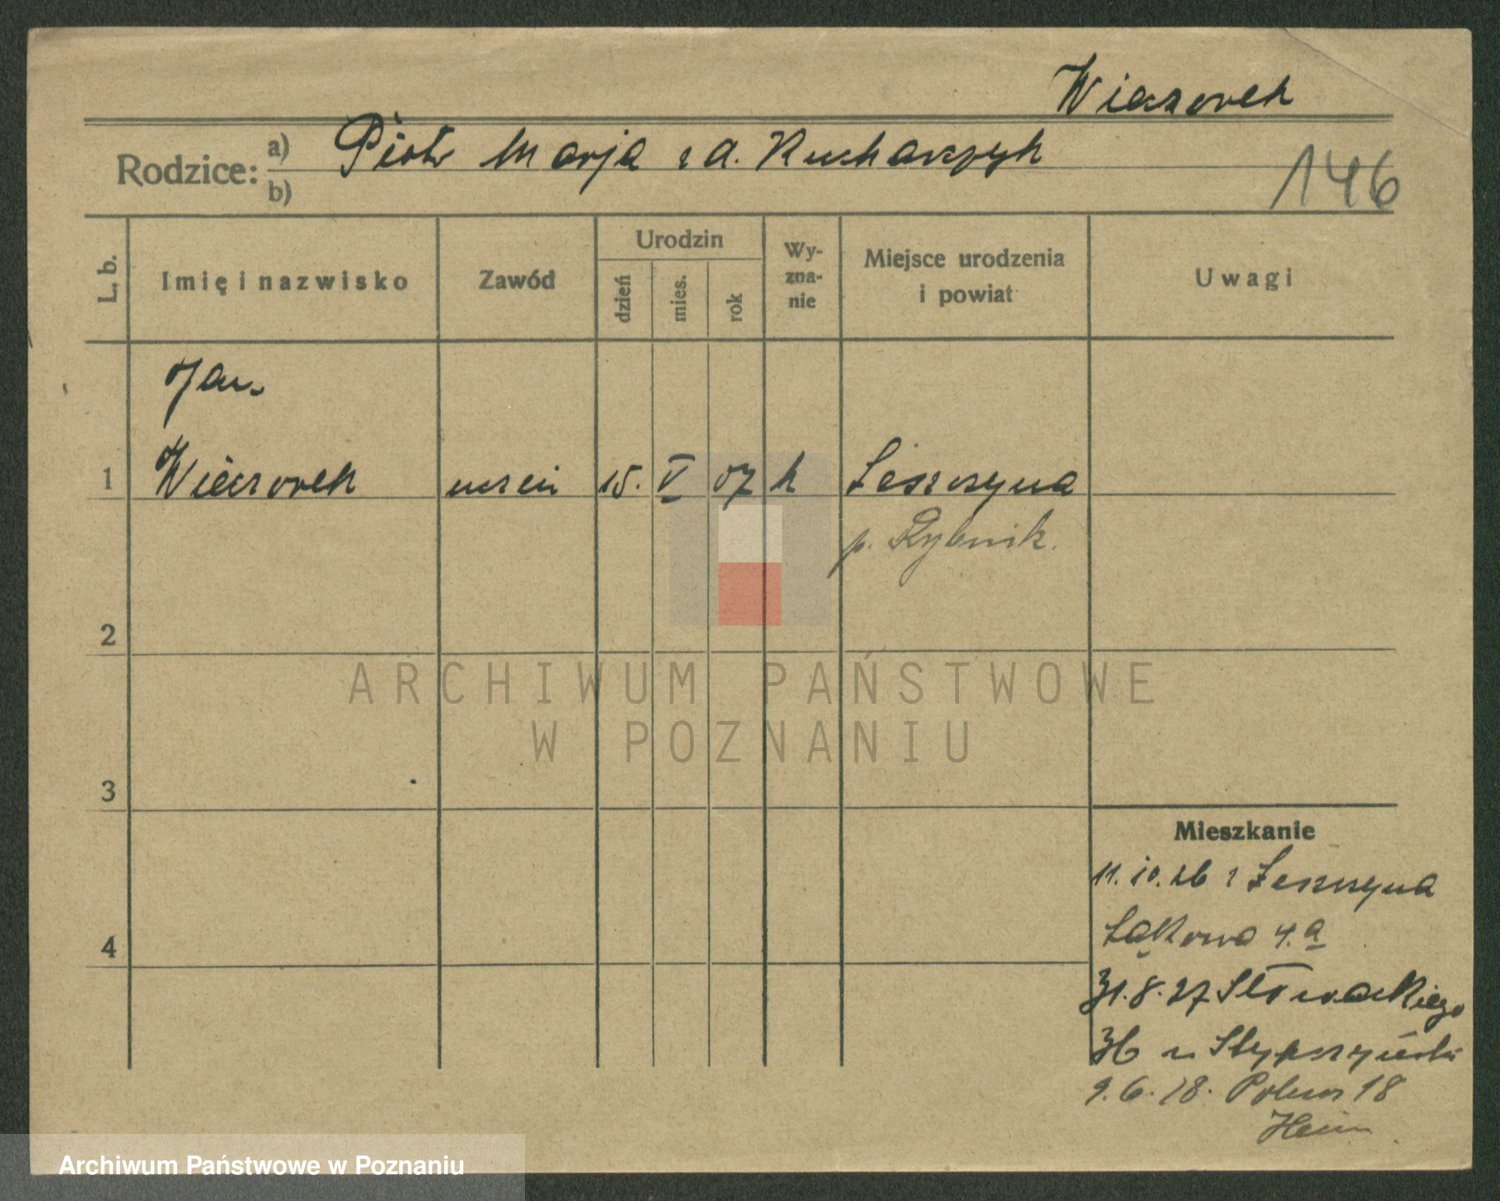 Wieczorek
Rodzice: a) Piotr Marja z d. Kucharczyk
b)
146
L. b.
Imię i nazwisko
Zawód
Urodzin
dzień
mies.
rok
Wy-
zna-
nie
Miejsce urodzenia
i powiat
Uwagi
Jan
1 Wieczorek uczeń 15. V 07 k Leszczyna
p. Rybnik.
2
ARCHIWUM PAŃSTWOWE
W POZNANIU
3
Mieszkanie
11.10.26 z Leszczyna
Łąkowa 4.a
4
31.8.27 Słowackiego
36 u Stypczyński
9.6.28. 18
Archiwum Państwowe w Poznaniu